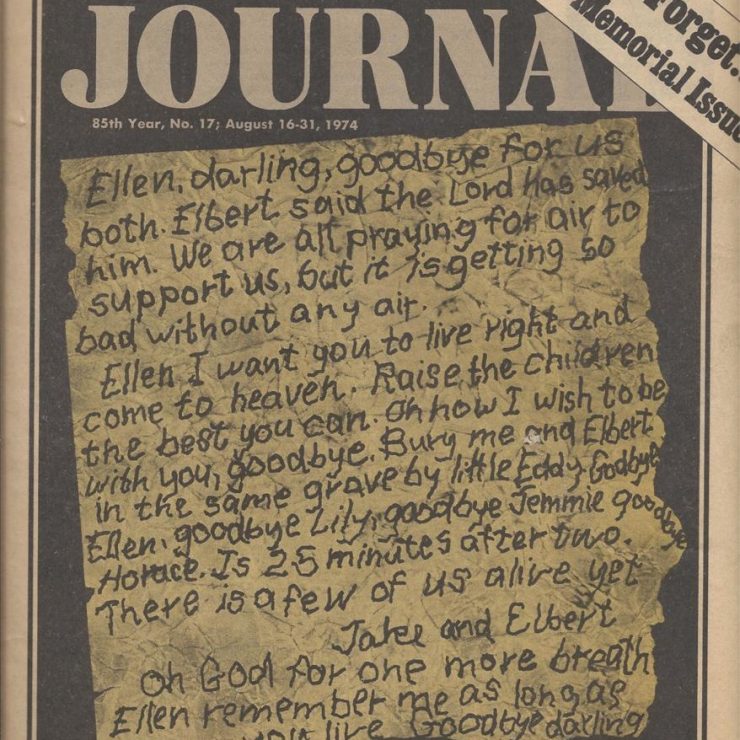 JOURNAL
Forget..
Memorial Issue
85th Year, No. 17; August 16-31, 1974
Ellen, darling, goodbye for us
both. Elbert said the Lord has saved
him. We are all praying for air to
support us, but it is getting so
bad without any air.
Ellen I want you to live right and
come to heaven. Raise the children
the best you can. Oh how I wish to be
with you, goodbye. Bury me and Elbert
in the same grave by little Eddy. Godbye
Ellen, goodbye Lily, goodbye Jemmie goodbye
Horace. Is 25 minutes after two.
There is a few of us alive yet
Jake and Elbert
Oh God for one more breath
Ellen remember me as long as
you live Goodbye darling